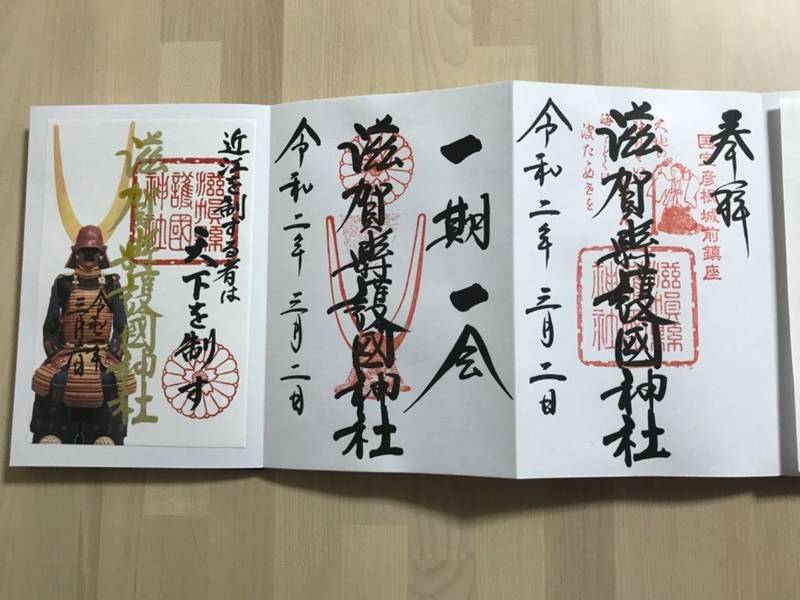 奉拝
国宝彦根城前鎮座
滋賀縣護國神社
滋賀縣護國神社
令和二年 三月二日
一期一会
滋賀縣護國神社
令和二年 三月二日
近江を制する者は
天下を制す
滋賀縣護國神社
滋賀縣護國神社
令和二年
三月二日